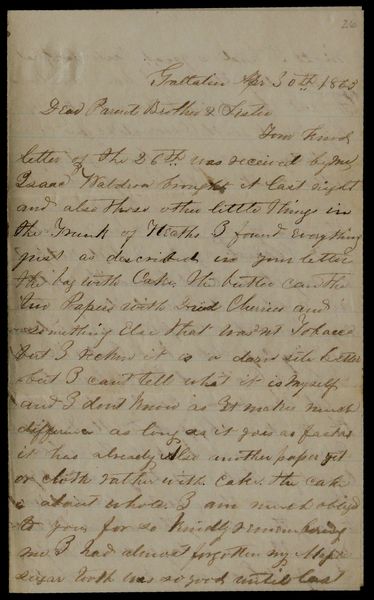 26
Gallatin Apr 30th 1863
Dear Parent Brother & Sister
Your kind
letter of the 26th was received by me
Isaac Waldron brought it last night
and also those other little things in
the Trunk of Heaths I found everything
just as described in your letter
the bag with Cake, the butter can the
two Papers with Dried Cherries and
something Else that wasnt Tobacco
but I reckon it is a darn site better
but I cant tell what it is myself
and I dont know as It makes much
difference as long as it goes as fast as
it has already Also another paper yet
or cloth rather with cake. the cake
is about whole. I am much obliged
to you for so kindly remembering
me I had almost forgotten my Maple
sugar tooth was so good until last